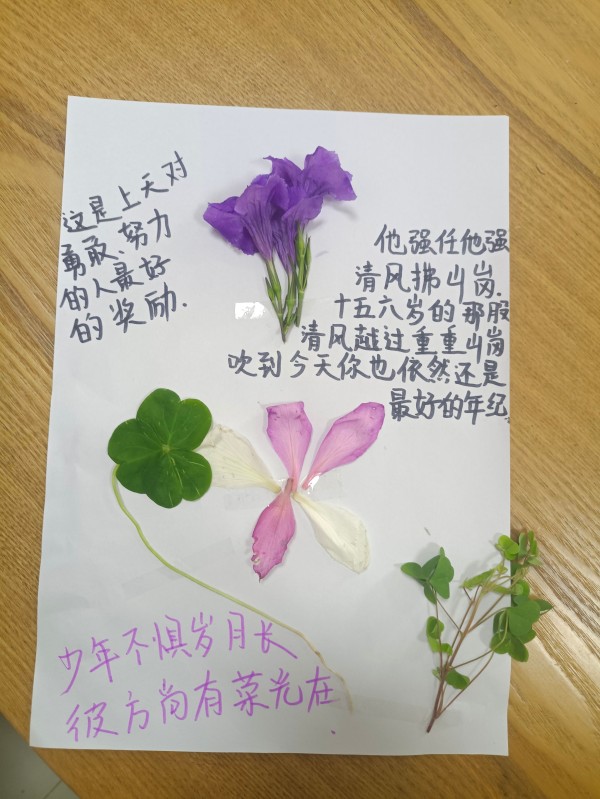 这是上天对
勇敢、努力
的人最好
的奖励.
他强任他强
清风拂山岗.
十五六岁的那股
清风越过重重山岗
吹到今天你也依然还是
最好的年纪
少年不惧岁月长
彼方尚有菜光在.